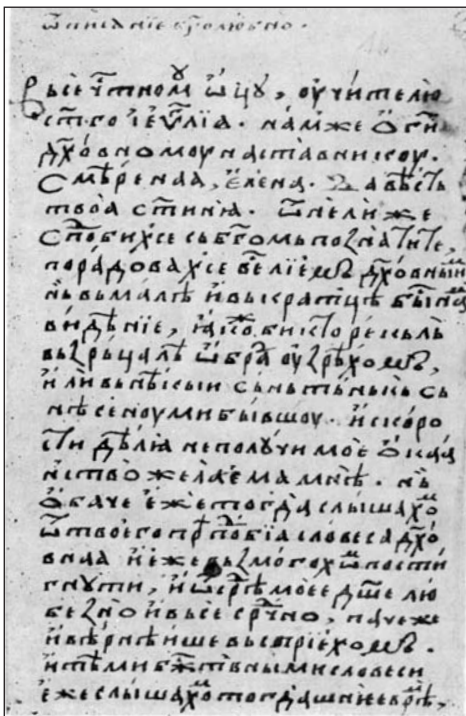 ѿписанїе бг҃олюбно·
Вьсечⷭ҇тномꙋ ѡц҃ꙋ, оучителю
ст҃го і҆еѵⷢ҇лїа· намже
дх҃овномоу наставникоу·
Смѣренаа, є҆лена· Да вѣсть
твоа ст҃инїа· ѿнелиже
сп҃обихсе сьбг҃омь познатите,
порадовахсе велїемь дх҃овныим
нь вьмалѣ и҆ вькратцѣ быⷭ҇
видѣнїе, ꙗ҆ко
вьзрьцалѣ ѡ҆браꙁ оузрѣхомь,
и҆ли вьнѣкыи сьньтьнькь сь
нѣсеноумибывшоу· и҆скоро
сти дѣлїа неполучи мое ѻ҆каа
нство желаемамнѣ· нь
ѻ҆баче є҆же тогда слышахѡⷨ
ѿтвоего прⷣпⷣобїа словеса дх҃о
внаа и҆ єже вьзмогохѡⷨ пости
гнути, мое дш҃елю
безно и҆ вьсесрⷣчно, паче же
и҆ вѣрнѣише вьспрїехомь·
и҆тѣми бжⷭ҇твными словеси
є҆же слышахѡⷨ тогдашнїе